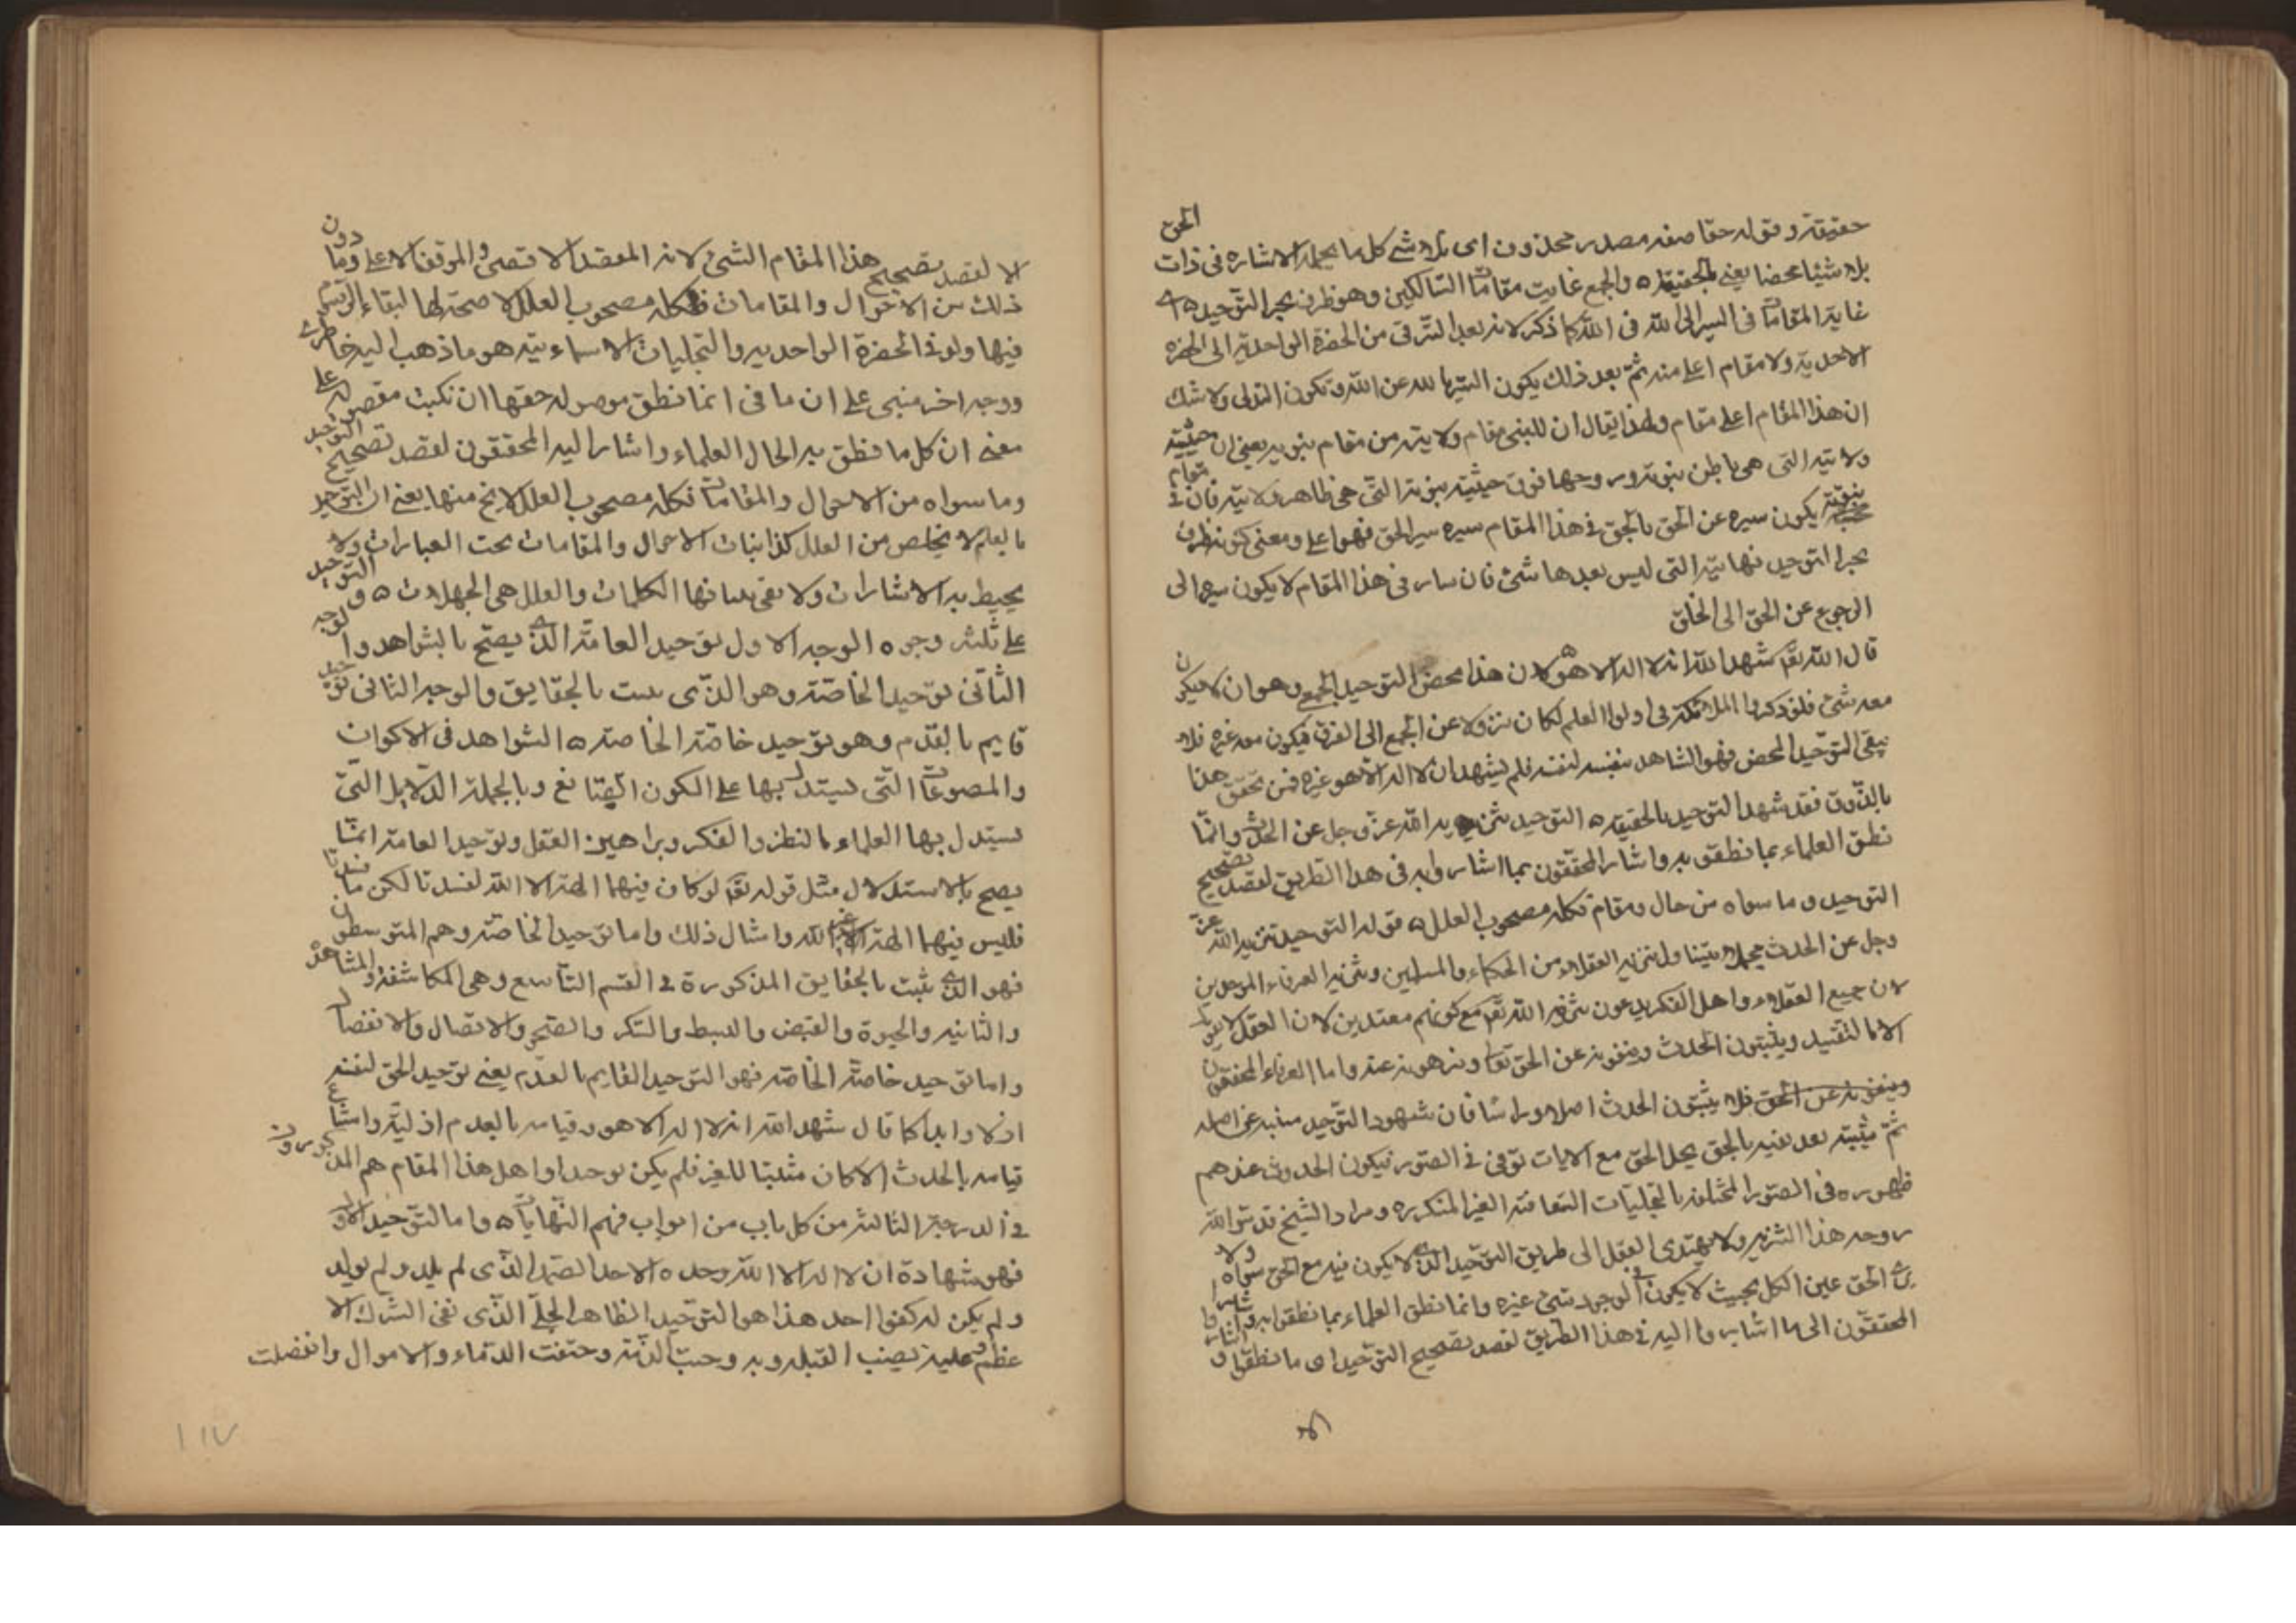 حقيقة وقوله حقا صفة مصدر محذوف اى تلاشى كل ما يحمله الاشارة فى ذات الحق
بلا شيئا محضا يعنى بالحقيقة ه والجمع غاية مقامات السالكين وهو طرف بحر التوحيد ه اى
غاية المقامات فى السير الى الله فى الله كما ذكر لانه بعد الترقى من الحضرة الواحدية الى الحضرة
الاحدية ولا مقام اعلى منه ثم بعد ذلك يكون السير بالله عن الله ويكون التدلى ولا شك
ان هذا المقام اعلى مقام ولهذا يقال ان للنبى مقام ولايته من مقام نبوته يعنى ان حيثية
ولايته التى هى باطن نبوته وروحها فوق حيثية نبوته التى هى ظاهر ولايته فان فى مقام
نبوته يكون سيره عن الحق بالحق فى هذا المقام سيره سير الحق فهو اعلى ومعنى كونه طرف
بحر التوحيد نهايته التى ليس بعدها شئ فان سار فى هذا المقام لا يكون سيره الى
الرجوع عن الحق الى الخلق
قال الله تعالى شهد الله انه لا اله الا هو لان هذا محض التوحيد الجمعى وهو ان لا يكون
معه شئ فلو ذكر والملائكة واولوا العلم لكان نزولا عن الجمع الى الفرق فيكون معه غيره فلا
يبقى التوحيد المحض فهو الشاهد بنفسه لنفسه فلم يشهد ان لا اله الا هو غيره فمن تحقق هذا
بالذوق فقد شهد التوحيد بالحقيقة ه التوحيد تنزيه الله عز وجل عن الحدث وانما
نطق العلماء بما نطقوا به واشار المحققون بما اشاروا به فى هذا الطريق لقصد تصحيح
التوحيد وما سواه من حال ومقام فكله مصحوب العلل ه قوله التوحيد تنزيه الله عز
وجل عن الحدث مجملا بيننا وله تنزيه العقلاء من الحكماء والمسلمين وتنزيه العرفاء الموحدين
لان جميع العقلاء واهل الفكر يدعون تنزيه الله تعالى مع كونهم مقيدين لان العقل لا يقول
الا بالتقييد ويثبتون الحدث وينفونه عن الحق تعالى وينزهونه عنه واما العرفاء المحققون
وينفونه عن الحق فلا يثبتون الحدث اصلا وراسا فان شهود التوحيد ينفيه عن اصله
ثم يثبته بعد نفيه بالحق يحل الحق مع الايات توفى فى الصور فيكون الحدوث عندهم
ظهوره فى الصور المختلفة بالتجليات المتعاقبة الغير المتكررة ومراد الشيخ قدس الله
روحه هذا التنزيه ولا يهتدى العقل الى طريق التوحيد الذى لا يكون فيه مع الحق سواه ولا
يرى الحق عين الكل بحيث لا يكون فى الوجود شئ غيره وانما نطق العلماء بما نطقوا به واشار
المحققون الى ما اشاروا اليه فى هذا الطريق لقصد تصحيح التوحيد اى ما نطقوا و
الا
الا لقصد تصحيح هذا المقام الشئ لانه المقصد الاقصى والموقف الاعلى وما دون
ذلك من الاحوال والمقامات فكله مصحوب العلل لا صحة لها لبقاء الرسم
فيها ولو فى الحضرة الواحدية والتجليات الاسمائية هو ما ذهب اليه خاطرى
ووجه اخر مبنى على ان ما فى انما نطق موصولة حقها ان تكتب مفصولة على
معنى ان كل ما نطق به الحال العلماء واشار اليه المحققون لقصد تصحيح التوحيد
وما سواه من الاحوال والمقامات فكله مصحوب العلل لا يخ منها يعنى ان التوحيد
بالعلم لا يخلص من العلل كذا ابنات الاحوال والمقامات تحت العبارات ولا
يحيط به الاشارات ولا يفى ببيانها الكلمات والعلل هى الجهلات ه و التوحيد
على ثلثة وجوه الوجه الاول توحيد العامة الذى يصح بالشواهد والوجه
الثانى توحيد الخاصة وهو الذى يثبت بالحقايق والوجه الثالث توحيد
قايم بالقدم وهو توحيد خاصة الخاصة ه الشواهد فى الاكوان
والمصنوعات التى يستدل بها على المكون الصانع وبالجملة الدلايل التى
يستدل بها العلماء بالنظر والفكر وبراهين العقل وتوحيد العامة انما
يصح بالاستدلال مثل قوله تعالى لو كان فيهما الهة الا الله لفسدتا لكن ما فسدتا
فليس فيهما الهة غير الله وامثال ذلك واما توحيد الخاصة وهم المتوسطون
فهو الذى يثبت بالحقايق المذكورة فى القسم التاسع وهى المكاشفة والمشاهدة
والثانية والحيوة والقبض والبسط والسكر والصحو والاتصال والانفصال
واما توحيد خاصة الخاصة فهو التوحيد القايم بالقدم يعنى توحيد الحق لنفسه
ازلا وابدا كما قال شهد الله انه لا اله الا هو وقيامه بالقدم ازليته وامتناع
قيامه بالحدث والا كان مثبتا للغير فلم يكن توحيدا واهل هذا المقام هم المذكورون
فى الدرجة الثالثة من كل باب من ابواب قسم النهايات ه واما التوحيد الاول
فهو شهادة ان لا اله الا الله وحده الاحد الصمد الذى لم يلد ولم يولد
ولم يكن له كفوا احد هذا هو التوحيد الظاهر الجلى الذى نفى الشرك الا
عظم وعليه نصبت القبلة وبه وجبت الذمة وحقنت الدماء والاموال وانفصلت
١١٧